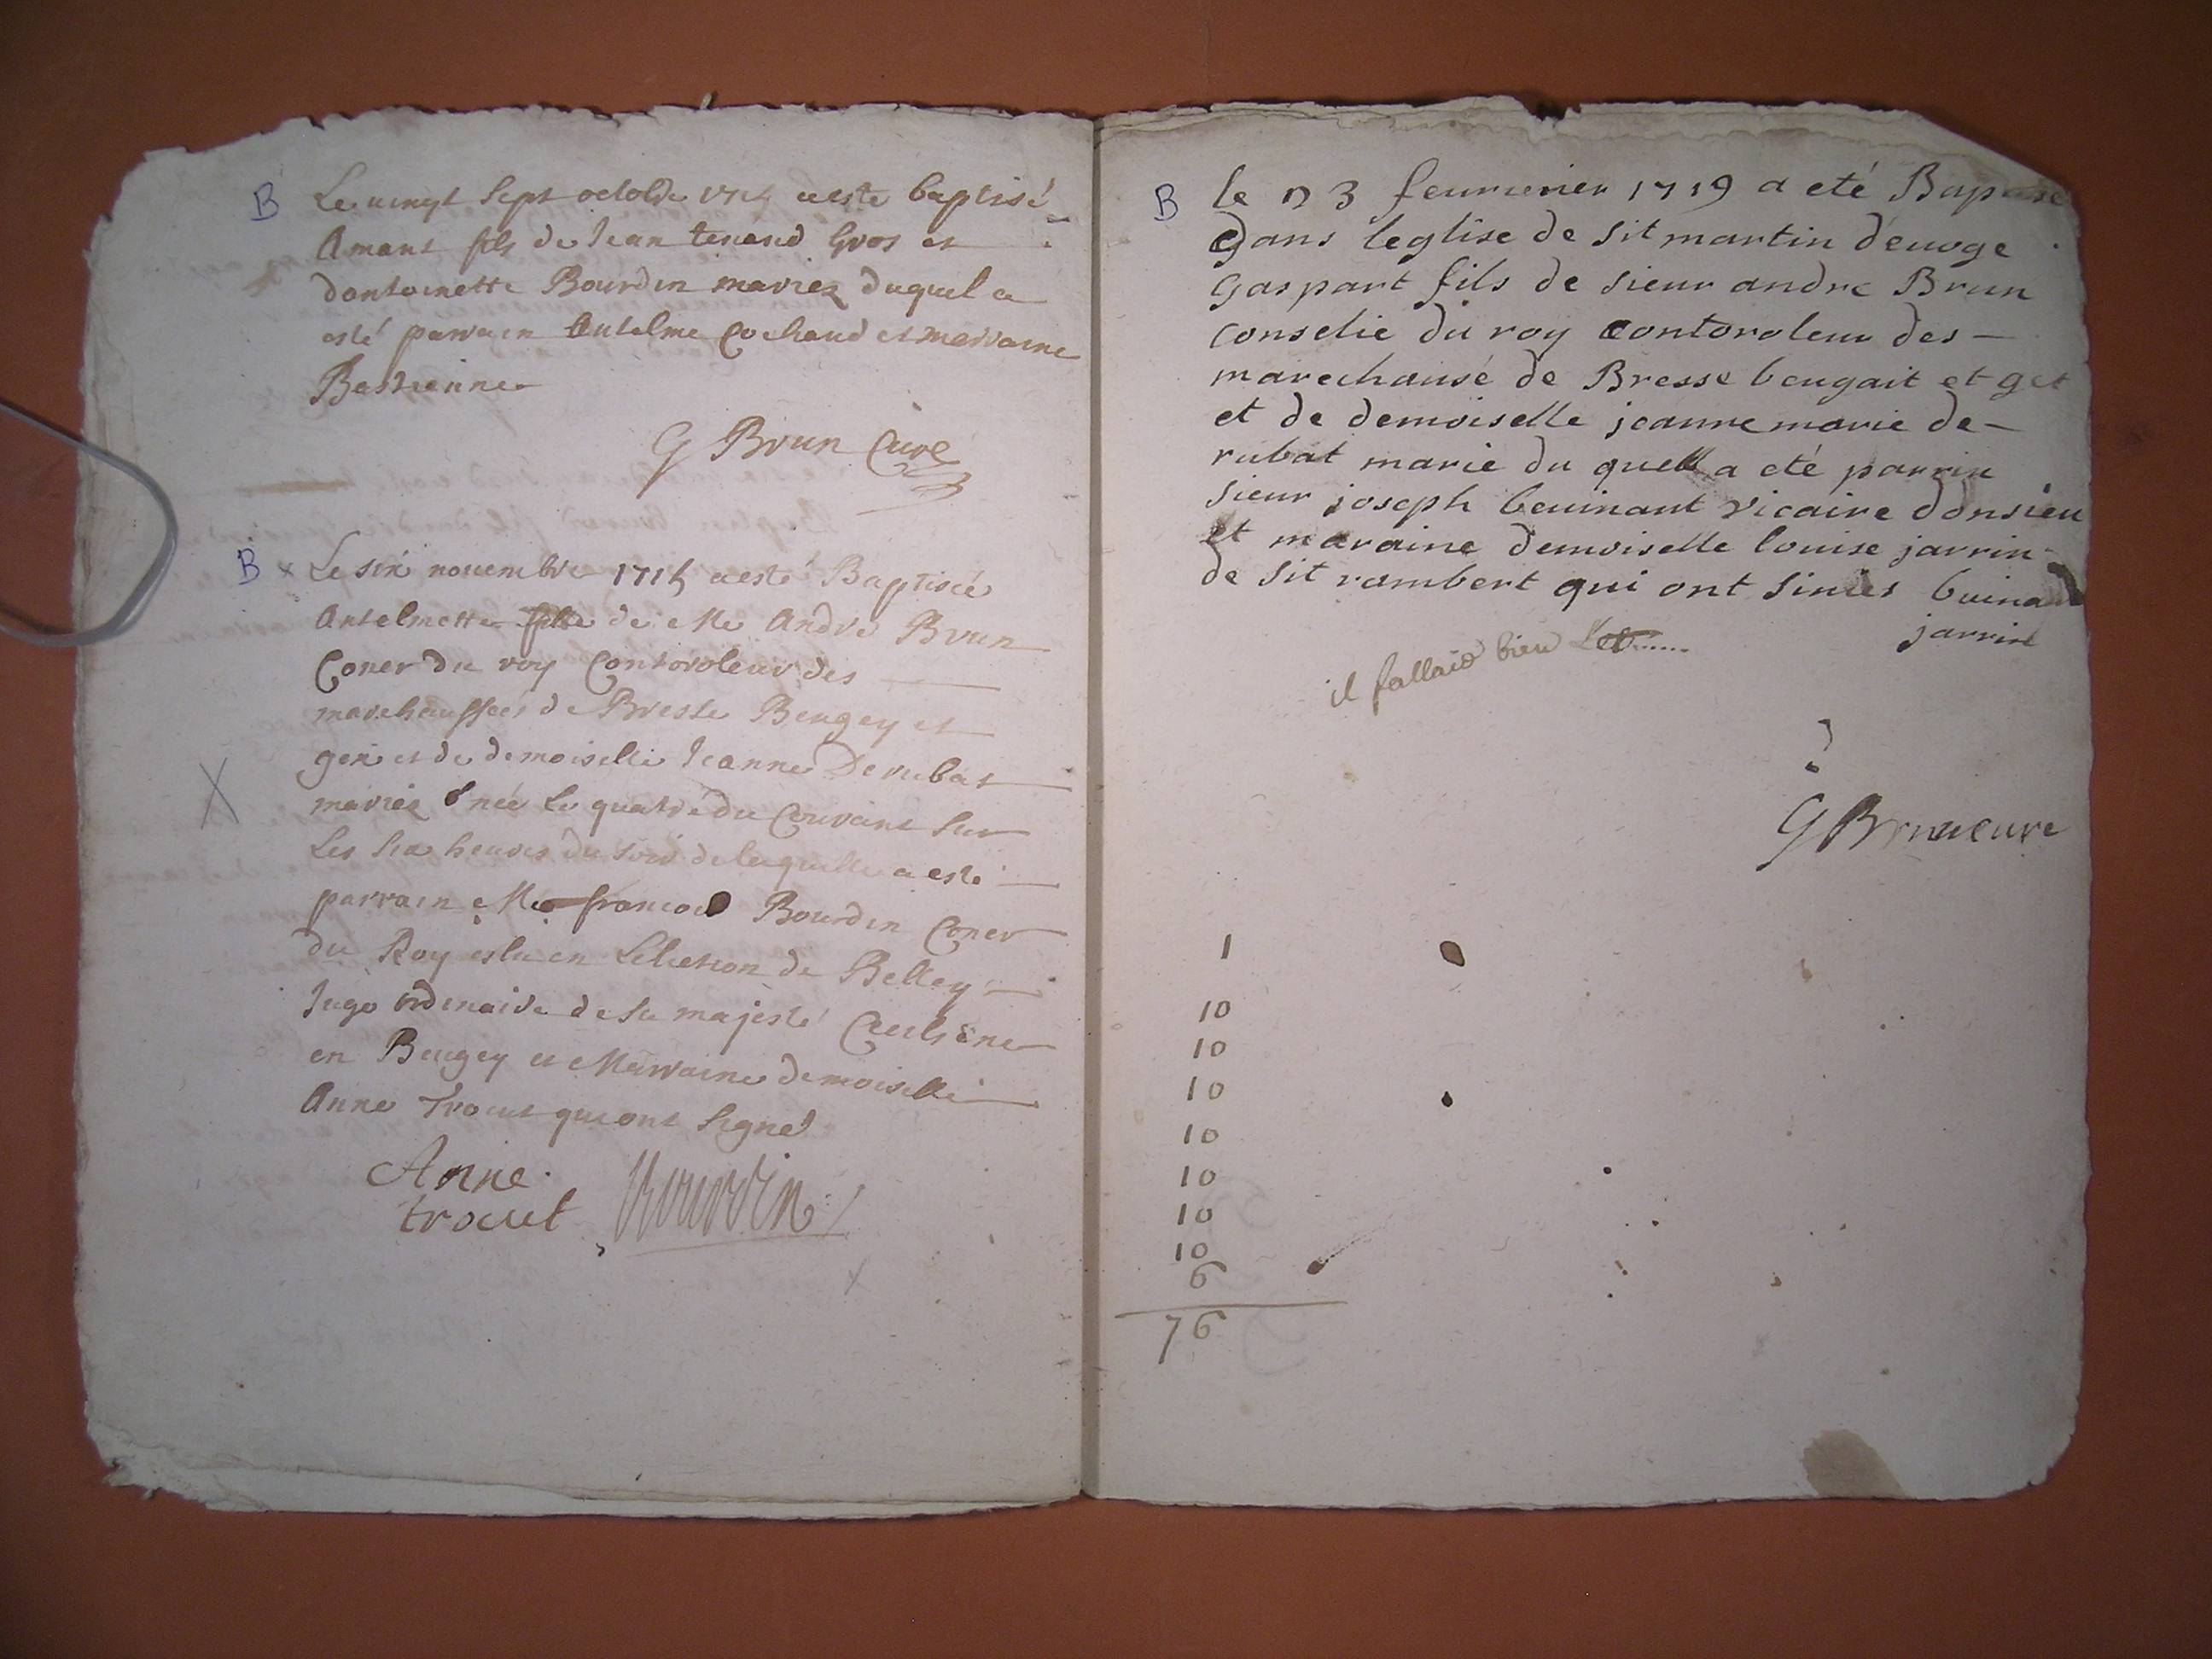 B Le vingt Sept octobre a esté baptisé
Amant fils de Jean tenand Gros et
dantoinette Bourdin mariez duquel a
esté parrain Antelme Cochand et marraine
Bastienne
G Brun Curé
B x Le six novembre 1715 a esté Baptisée
Antelmette fille de Me André Brun
Coner du roy Contoroleur des
marechaussées de Bresse Beugey et
gex et de demoiselle Jeanne Derubat
mariez née Le quatre du Courant sur
X
Les six heures du soir de laquelle a esté
parrain Me francois Bourdin Coner
du Roy eslu en Lelection de Belley
Juge ordinaire de Sa majesté
en Beugey et Marraine demoiselle
Anne Trocut qui ont signé
Anne
trocut Bourdin
x
B le 3 feurierier 1719 a eté Baptisé
dans leglise de sit martin
gaspart fils de sieur andre Brun
conselie du roy contoroleur des
marechausé de Bresse beugait et get
et de demoiselle jeanne marie de
rubat marie du quell a eté parrin
sieur joseph beuinant vicaire donsieu
et maraine demoiselle louise jarrin
de sit rambert qui ont sinies buinan
jarrin
il fallait bien
?
G Brun cure
1
10
10
10
10
10
10
10
6
76